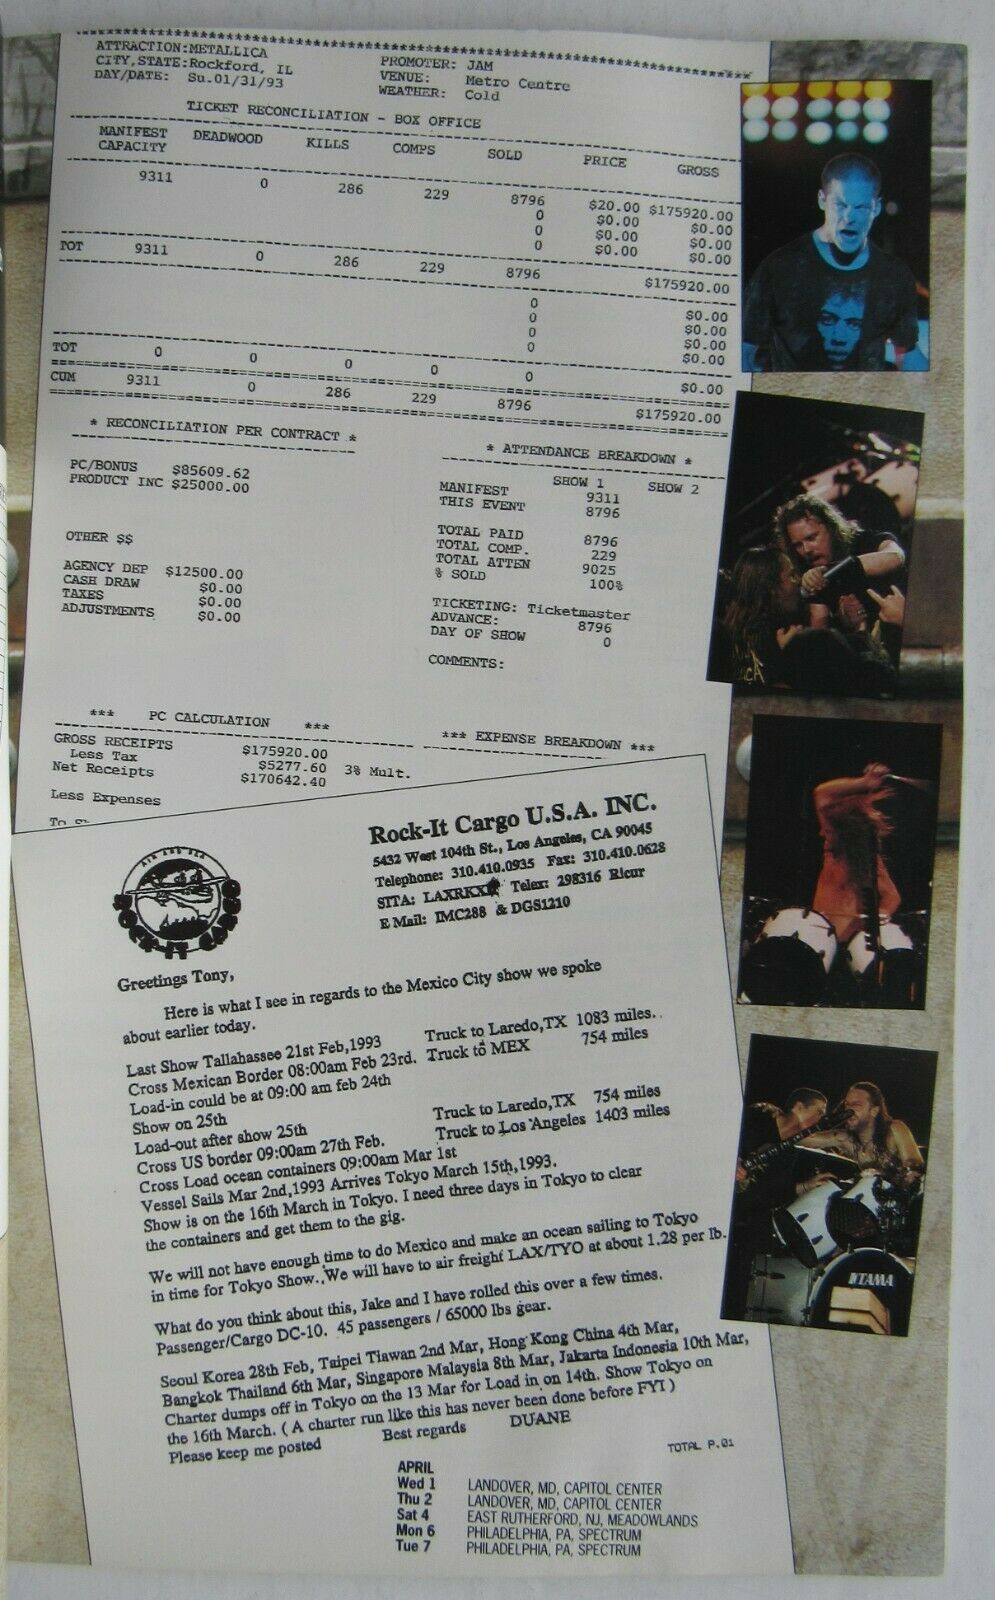 ATTRACTION:METALLICA
CITY,STATE:Rockford, IL
DAY/DATE: Su.01/31/93
PROMOTER: JAM
VENUE: Metro Centre
WEATHER: Cold
TICKET RECONCILIATION - BOX OFFICE
MANIFEST CAPACITY DEADWOOD KILLS COMPS SOLD PRICE GROSS
9311 0 286 229 8796 $20.00 $175920.00
0 $0.00 $0.00
0 $0.00 $0.00
0 $0.00 $0.00
TOT 9311 0 286 229 8796 $175920.00
0 $0.00
0 $0.00
0 $0.00
0 $0.00
TOT 0 0 0 0 0 $0.00
CUM 9311 0 286 229 8796 $175920.00
* RECONCILIATION PER CONTRACT *
PC/BONUS $85609.62
PRODUCT INC $25000.00
OTHER $$
AGENCY DEP $12500.00
CASH DRAW $0.00
TAXES $0.00
ADJUSTMENTS $0.00
* ATTENDANCE BREAKDOWN *
SHOW 1 SHOW 2
MANIFEST 9311
THIS EVENT 8796
TOTAL PAID 8796
TOTAL COMP. 229
TOTAL ATTEN 9025
% SOLD 100%
TICKETING: Ticketmaster
ADVANCE: 8796
DAY OF SHOW 0
COMMENTS:
*** PC CALCULATION ***
GROSS RECEIPTS $175920.00
Less Tax $5277.60 3% Mult.
Net Receipts $170642.40
Less Expenses
*** EXPENSE BREAKDOWN ***
Rock-It Cargo U.S.A. INC.
5432 West 104th St., Los Angeles, CA 90045
Telephone: 310.410.0935 Fax: 310.410.0628
SITA: Telex: 298316 Ricur
E Mail: IMC288 & DGS1210
AIR AND SEA
ROCK-IT CARGO
Greetings Tony,
Here is what I see in regards to the Mexico City show we spoke
about earlier today.
Last Show Tallahassee 21st Feb,1993 Truck to Laredo,TX 1083 miles.
Cross Mexican Border 08:00am Feb 23rd. Truck to MEX 754 miles
Load-in could be at 09:00 am feb 24th
Show on 25th
Load-out after show 25th Truck to Laredo,TX 754 miles
Cross US border 09:00am 27th Feb. Truck to Los Angeles 1403 miles
Cross Load ocean containers 09:00am Mar 1st
Vessel Sails Mar 2nd,1993 Arrives Tokyo March 15th,1993.
Show is on the 16th March in Tokyo. I need three days in Tokyo to clear
the containers and get them to the gig.
We will not have enough time to do Mexico and make an ocean sailing to Tokyo
in time for Tokyo Show. We will have to air freight LAX/TYO at about 1.28 per lb.
What do you think about this, Jake and I have rolled this over a few times.
Passenger/Cargo DC-10. 45 passengers / 65000 lbs gear.
Seoul Korea 28th Feb, Taipei Tiawan 2nd Mar, Hong Kong China 4th Mar,
Bangkok Thailand 6th Mar, Singapore Malaysia 8th Mar, Jakarta Indonesia 10th Mar,
Charter dumps off in Tokyo on the 13 Mar for Load in on 14th. Show Tokyo on
the 16th March. ( A charter run like this has never been done before FYI )
Please keep me posted Best regards DUANE
TOTAL P.01
APRIL
Wed 1 LANDOVER, MD, CAPITOL CENTER
Thu 2 LANDOVER, MD, CAPITOL CENTER
Sat 4 EAST RUTHERFORD, NJ, MEADOWLANDS
Mon 6 PHILADELPHIA, PA, SPECTRUM
Tue 7 PHILADELPHIA, PA, SPECTRUM
TAMA